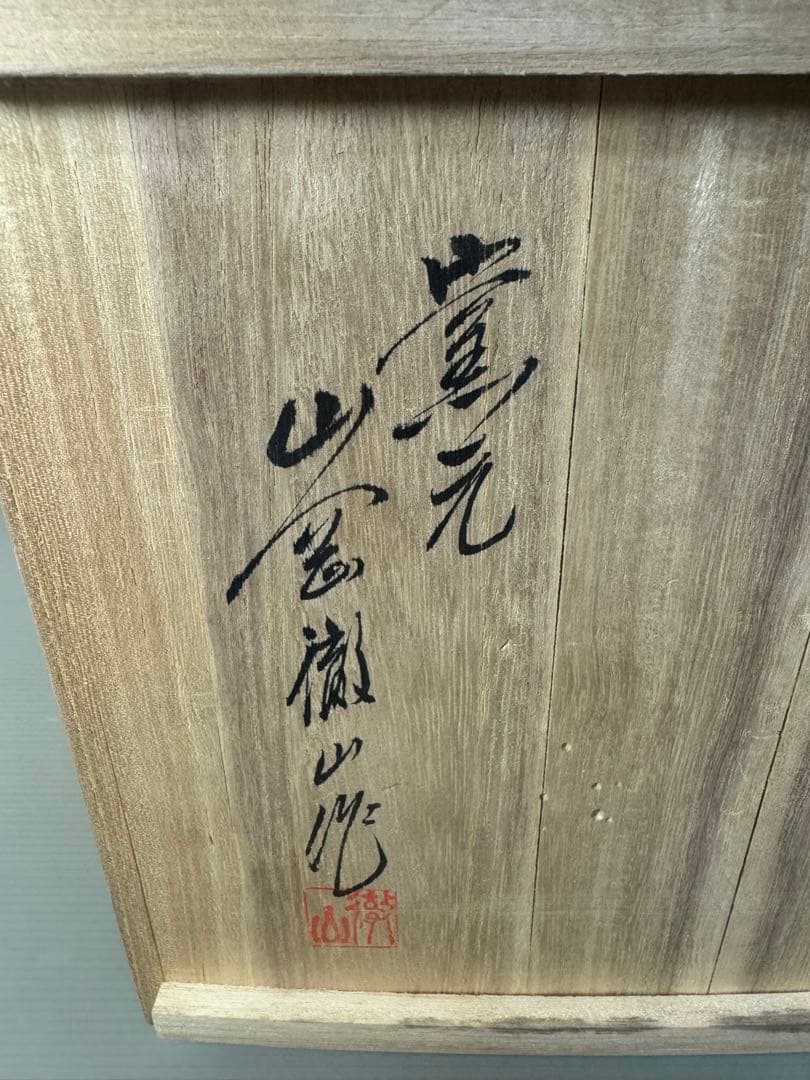 窯元
山岡徹山作
徹山